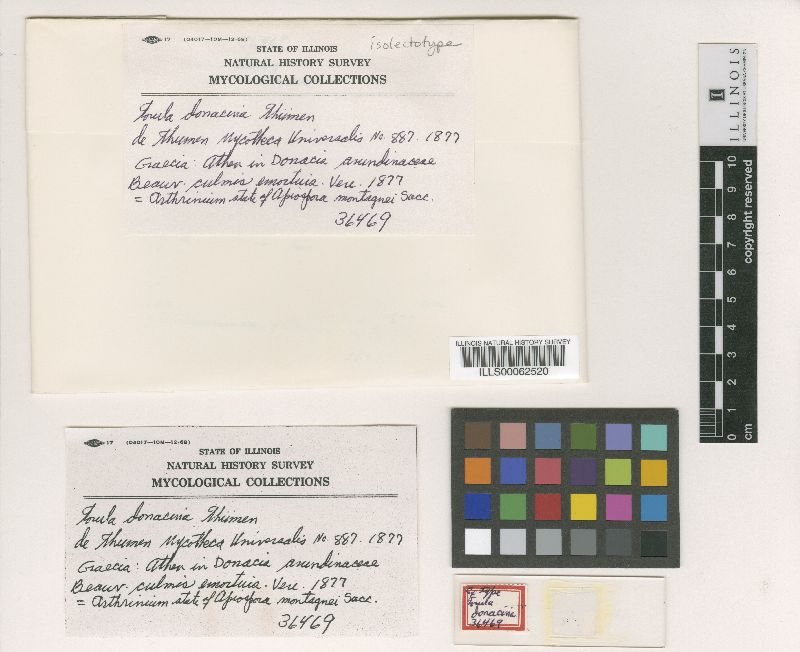 17 (04017—10M—12-68)
isolectotype
STATE OF ILLINOIS
NATURAL HISTORY SURVEY
MYCOLOGICAL COLLECTIONS
Torula donacina Thümen
de Thumen Mycotheca Universalis No. 887. 1877
Graecia: Athen in Donacia arundinaceae
Beauv. culmis emortuia. Vere. 1877
= Arthrinium state of Apiospora montagnei Sacc.
36469
ILLINOIS NATURAL HISTORY SURVEY
ILLS00062520
17 (04017—10M—12-68)
STATE OF ILLINOIS
NATURAL HISTORY SURVEY
MYCOLOGICAL COLLECTIONS
Torula donacina Thümen
de Thumen Mycotheca Universalis No. 887. 1877
Graecia: Athen in Donacia arundinaceae
Beauv. culmis emortuia. Vere. 1877
= Arthrinium state of Apiospora montagnei Sacc.
36469
type
Torula
donacina
36469
I ILLINOIS
0 1 2 3 4 5 6 7 8 9 10
cm
copyright reserved